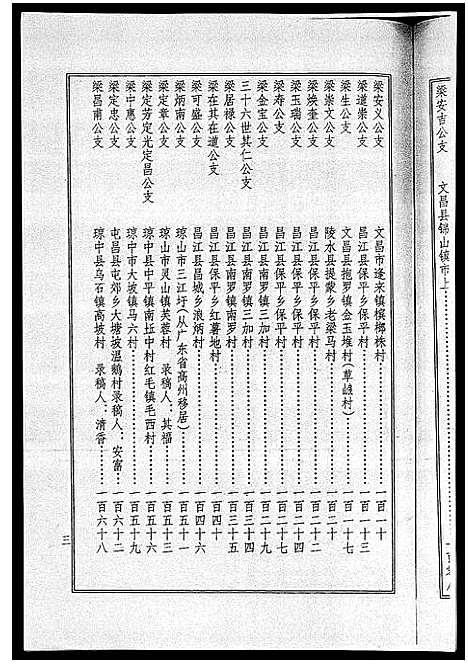 梁安吉公支 文昌县锦山镇市上
梁安义公支 文昌市蓬来镇槟榔株村 一百一十
梁道崇公支 昌江县保平乡保平村 一百一十三
梁生公支 文昌县抱罗镇金玉堆村(草𡒄村) 一百一十七
梁崇文公支 陵水县提蒙乡老梁马村 一百二十
梁焕奎公支 昌江县保平乡保平村 一百二十二
梁玉瑞公支 昌江县保平乡保平村 一百二十四
梁寿公支 昌江县保平乡保平村 一百二十七
梁金宝公支 昌江县南罗镇三加村 一百二十九
三十六世其仁公支 昌江县南罗镇三加村 一百三十四
梁居禄公支 昌江县南罗镇南罗村 一百三十五
梁在其在道公支 昌江县保平乡红薯地村 一百四十
梁可盛公支 昌江县昌城乡浪炳村 一百四十六
梁炳南公支 琼山市三江圩(从广东省高州移居) 一百五十一
梁定章公支 琼山市灵山镇芙蓉村 录稿人:其福 一百五十三
梁定芳定光定昌公支 琼中县中平镇南坵中村红毛镇毛西村 一百五十六
梁中惠公支 琼中市大坡镇马六村 一百五十九
梁定忠公支 屯昌县屯郊乡大塘坡温鹅村录稿人:安富 一百六十二
梁昌甫公支 琼中县乌石镇高坡村 录稿人:清香 一百六十八
三